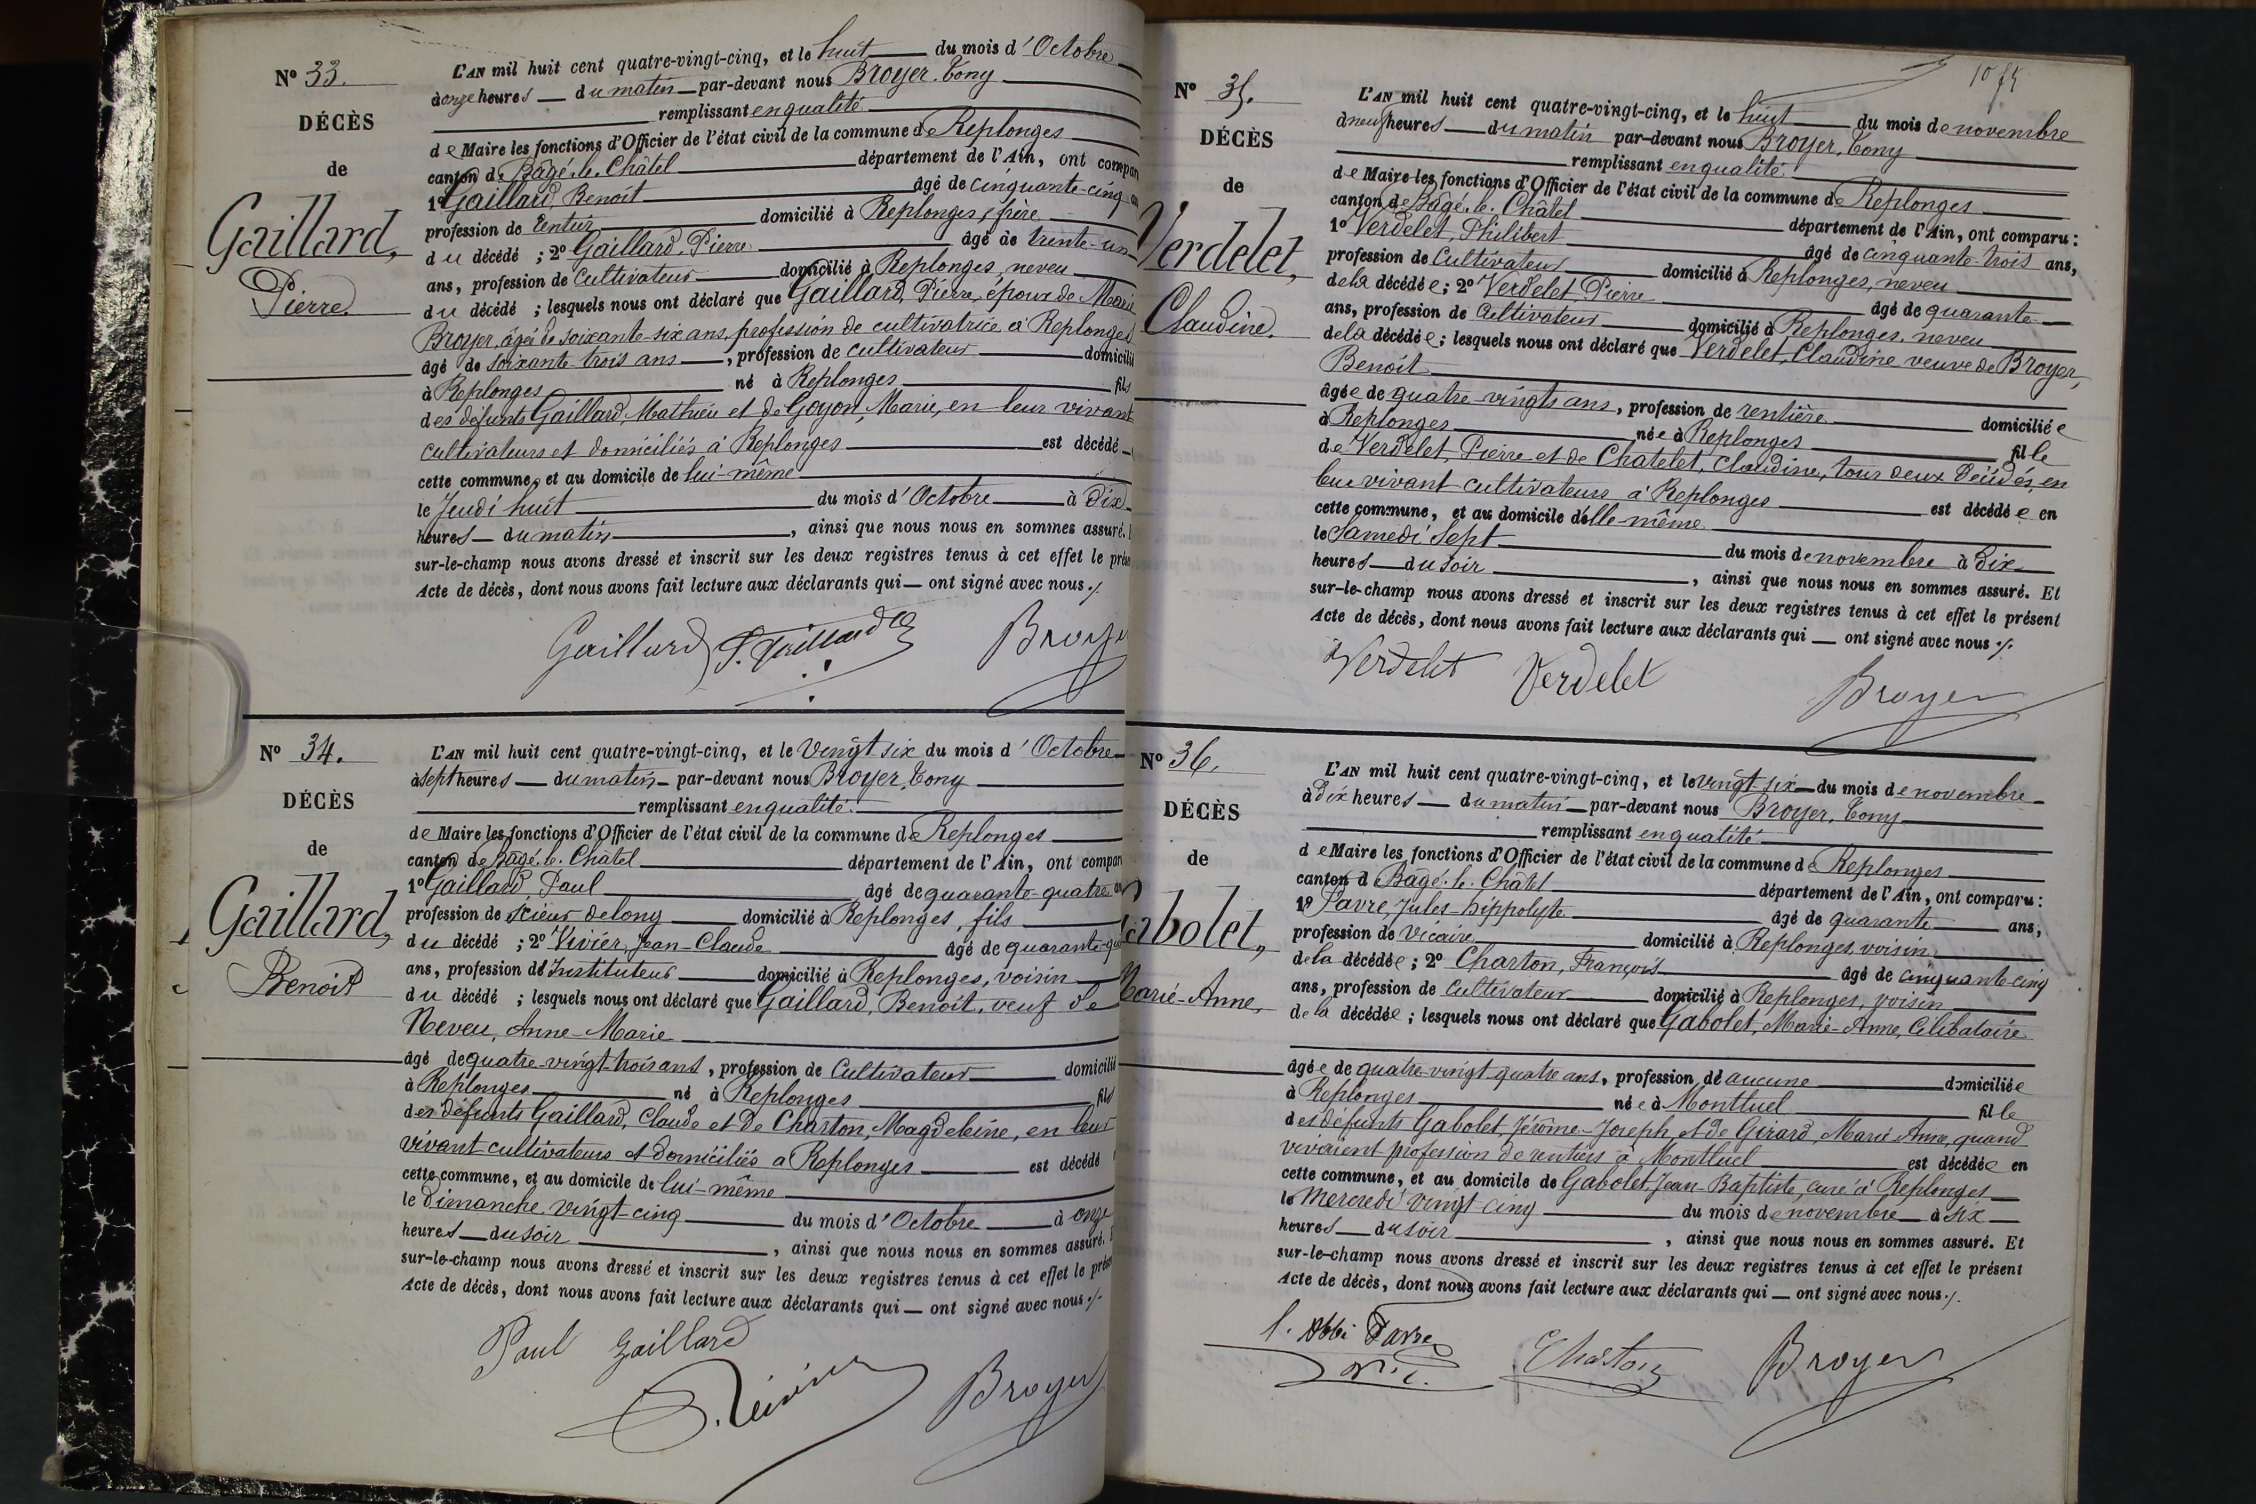 N° 33.
DÉCÈS
de
Gaillard,
Pierre.
L'AN mil huit cent quatre-vingt-cinq, et le huit du mois d'Octobre
à onze heures du matin par-devant nous Broyer, Tony
remplissant en qualité
de Maire les fonctions d'Officier de l'état civil de la commune de Replonges
canton de Bâgé-le-Châtel département de l'Ain, ont compar
1° Gaillard, Benoit âgé de cinquante-cinq
profession de Rentier domicilié à Replonges, frère
du décédé ; 2° Gaillard, Pierre âgé de trente-un
ans, profession de Cultivateur domicilié à Replonges, neveu
du décédé ; lesquels nous ont déclaré que Gaillard, Pierre, époux de Marie
Broyer, âgée de soixante-six ans, profession de cultivatrice à Replonges
âgé de soixante trois ans, profession de cultivateur domicilié
à Replonges né à Replonges fils
des défunts Gaillard, Mathieu et de Goyon, Marie, en leur vivant
cultivateurs et domiciliés à Replonges est décédé
cette commune, et au domicile de lui-même
le Jeudi huit du mois d'Octobre à dix
heures du matin, ainsi que nous nous en sommes assuré.
sur-le-champ nous avons dressé et inscrit sur les deux registres tenus à cet effet le prés
Acte de décès, dont nous avons fait lecture aux déclarants qui — ont signé avec nous ./.
Gaillard P. Gaillard Broye
N° 34.
DÉCÈS
de
Gaillard,
Benoit
L'AN mil huit cent quatre-vingt-cinq, et le vingt six du mois d'Octobre
à sept heures du matin par-devant nous Broyer, Tony
remplissant en qualité
de Maire les fonctions d'Officier de l'état civil de la commune de Replonges
canton de Bâgé-le-Châtel département de l'Ain, ont compar
1° Gaillard, Paul âgé de quarante-quatre
profession de scieur de long domicilié à Replonges, fils
du décédé ; 2° Vivier, Jean-Claude âgé de quarante
ans, profession d'Instituteur domicilié à Replonges, voisin
du décédé ; lesquels nous ont déclaré que Gaillard, Benoît, veuf de
Neveu, Anne-Marie
âgé de quatre-vingt-trois ans, profession de Cultivateur domicilié
à Replonges né à Replonges fils
des défunts Gaillard, Claude et de Charton, Magdeleine, en leur
vivant cultivateurs et domiciliés à Replonges est décédé
cette commune, et au domicile de lui-même
le Dimanche vingt-cinq du mois d'Octobre à onze
heures du soir, ainsi que nous nous en sommes assuré.
sur-le-champ nous avons dressé et inscrit sur les deux registres tenus à cet effet le prés
Acte de décès, dont nous avons fait lecture aux déclarants qui — ont signé avec nous ./.
Paul Gaillard
Broyer
N° 35.
DÉCÈS
de
Verdelet,
Claudine.
L'AN mil huit cent quatre-vingt-cinq, et le huit du mois de novembre
à neuf heures du matin par-devant nous Broyer, Tony
remplissant en qualité
de Maire les fonctions d'Officier de l'état civil de la commune de Replonges
canton de Bâgé-le-Châtel département de l'Ain, ont comparu :
1° Verdelet, Philibert âgé de cinquante-trois ans,
profession de Cultivateur domicilié à Replonges, neveu
de la décédée ; 2° Verdelet, Pierre âgé de quarante
ans, profession de Cultivateur domicilié à Replonges, neveu
de la décédée ; lesquels nous ont déclaré que Verdelet, Claudine veuve de Broyer,
Benoît
âgée de quatre-vingts ans, profession de rentière domiciliée
à Replonges née à Replonges fille
de Verdelet, Pierre et de Chatelet, Claudine, tous deux décédés, en
leur vivant cultivateurs à Replonges est décédée en
cette commune, et au domicile d'elle-même
le Samedi sept du mois de novembre à dix
heures du soir, ainsi que nous nous en sommes assuré. Et
sur-le-champ nous avons dressé et inscrit sur les deux registres tenus à cet effet le présent
Acte de décès, dont nous avons fait lecture aux déclarants qui — ont signé avec nous ./.
Verdelet Verdelet Broyer
N° 36.
DÉCÈS
de
abolet,
Marie-Anne,
L'AN mil huit cent quatre-vingt-cinq, et le vingt-six du mois de novembre
à dix heures du matin par-devant nous Broyer, Tony
remplissant en qualité
de Maire les fonctions d'Officier de l'état civil de la commune de Replonges
canton d Bâgé-le-Châtel département de l'Ain, ont comparu :
1° Favre, Jules-hippolyte âgé de quarante ans,
profession de vicaire domicilié à Replonges, voisin
de la décédée ; 2° Charton, François âgé de cinquante-cinq
ans, profession de Cultivateur domicilié à Replonges, voisin
de la décédée ; lesquels nous ont déclaré que Gabolet, Marie-Anne, Célibataire
âgée de quatre-vingt-quatre ans, profession de aucune domiciliée
à Replonges née à Montluel fille
des défunts Gabolet, Jérôme-Joseph et de Girard, Marie Anne, quand
vivaient profession de rentiers à Montluel est décédée en
cette commune, et au domicile de Gabolet, Jean-Baptiste, curé à Replonges
le Mercredi vingt-cinq du mois de novembre à six
heures du soir, ainsi que nous nous en sommes assuré. Et
sur-le-champ nous avons dressé et inscrit sur les deux registres tenus à cet effet le présent
Acte de décès, dont nous avons fait lecture aux déclarants qui — ont signé avec nous ./.
l'abbé Favre
vic.
Charton Broyer